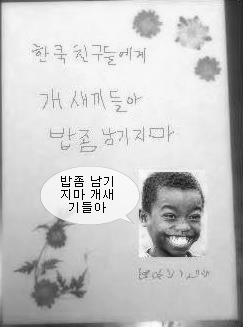 한쿡 친구들에게
개 새끼들아
밥좀 남기지마
밥좀 남기
지마 개새
기들아